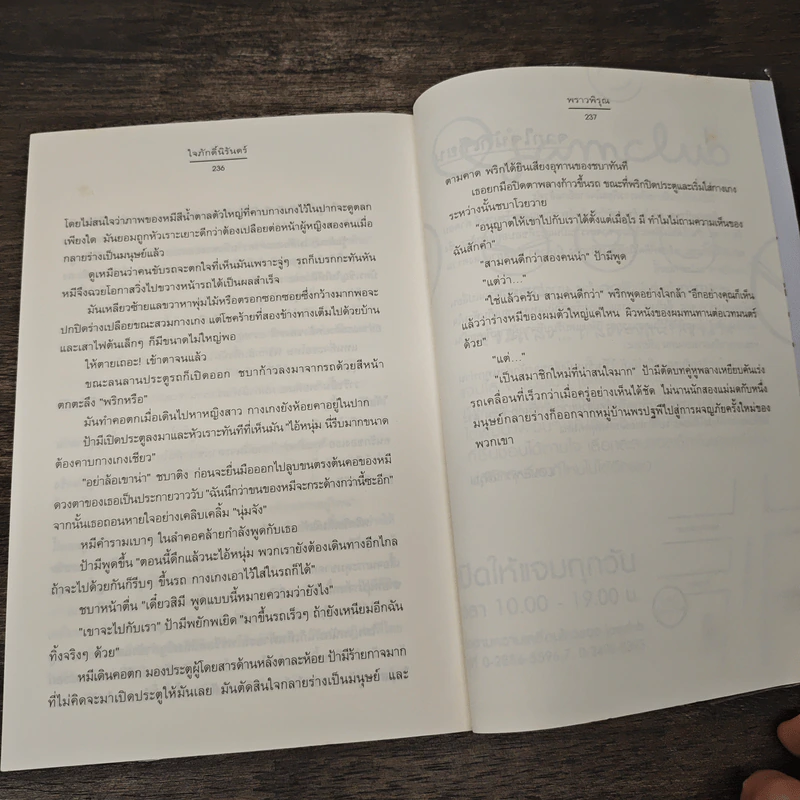 ใจภักดิ์นิรันดร์
236
โดยไม่สนใจว่าภาพของหมีสีน้ำตาลตัวใหญ่ที่คาบกางเกงไว้ในปากจะดูตลก
เพียงใด มันยอมถูกหัวเราะเยาะดีกว่าต้องเปลือยต่อหน้าผู้หญิงสองคนเมื่อ
กลายร่างเป็นมนุษย์แล้ว
ดูเหมือนว่าคนขับรถจะตกใจที่เห็นมันเพราะจู่ๆ รถก็เบรกกะทันหัน
หมีจึงฉวยโอกาสวิ่งไปขวางหน้ารถได้เป็นผลสำเร็จ
มันเหลียวซ้ายแลขวาหาพุ่มไม้หรือตรอกซอกซอยซึ่งกว้างมากพอจะ
ปกปิดร่างเปลือยขณะสวมกางเกง แต่โชคร้ายที่สองข้างทางเต็มไปด้วยบ้าน
และเสาไฟต้นเล็กๆ ที่มีขนาดไม่ใหญ่พอ
ให้ตายเถอะ! เข้าตาจนแล้ว
ขณะลนลานประตูรถก็เปิดออก ชบาก้าวลงมาจากรถด้วยสีหน้า
ตกตะลึง “พริกหรือ”
มันทำคอตกเมื่อเดินไปหาหญิงสาว กางเกงยังห้อยคาอยู่ในปาก
ป้ามีเปิดประตูลงมาและหัวเราะทันทีที่เห็นมัน “ไอ้หนุ่ม นี่รีบมากขนาด
ต้องคาบกางเกงเชียว”
“อย่าล้อเขาน่า” ชบาติง ก่อนจะยื่นมือออกไปลูบขนตรงต้นคอของหมี
ดวงตาของเธอเป็นประกายวาววับ “ฉันนึกว่าขนของหมีจะกระด้างกว่านี้ซะอีก”
จากนั้นเธอถอนหายใจอย่างเคลิบเคลิ้ม “นุ่มจัง”
หมีคำรามเบาๆ ในลำคอคล้ายกำลังพูดกับเธอ
ป้ามีพูดขึ้น “ตอนนี้ดึกแล้วนะไอ้หนุ่ม พวกเรายังต้องเดินทางอีกไกล
ถ้าจะไปด้วยกันก็รีบๆ ขึ้นรถ กางเกงเอาไว้ใส่ในรถก็ได้”
ชบาหน้าตื่น “เดี๋ยวสิมี พูดแบบนี้หมายความว่ายังไง”
“เขาจะไปกับเรา” ป้ามีพยักพเยิด “มาขึ้นรถเร็วๆ ถ้ายังเหนียมอีกฉัน
ทิ้งจริงๆ ด้วย”
หมีเดินคอตก มองประตูผู้โดยสารด้านหลังตาละห้อย ป้ามีร้ายกาจมาก
ที่ไม่คิดจะมาเปิดประตูให้มันเลย มันตัดสินใจกลายร่างเป็นมนุษย์ และ
พราวพิรุณ
237
ตามคาด พริกได้ยินเสียงอุทานของชบาทันที
เธอยกมือปิดตาพลางก้าวขึ้นรถ ขณะที่พริกปิดประตูและเริ่มใส่กางเกง
ระหว่างนั้นชบาโวยวาย
“อนุญาตให้เขาไปกับเราได้ตั้งแต่เมื่อไร มี ทำไมไม่ถามความเห็นของ
ฉันสักคำ”
“สามคนดีกว่าสองคนน่า” ป้ามีพูด
“แต่ว่า...”
“ใช่แล้วครับ สามคนดีกว่า” พริกพูดอย่างใจกล้า “อีกอย่างคุณก็เห็น
แล้วว่าร่างหมีของผมตัวใหญ่แค่ไหน ผิวหนังของผมทนทานต่อเวทมนตร์
ด้วย”
“แต่...”
“เป็นสมาชิกใหม่ที่น่าสนใจมาก” ป้ามีตัดบทคู่หูพลางเหยียบคันเร่ง
รถเคลื่อนที่เร็วกว่าเมื่อครู่อย่างเห็นได้ชัด ไม่นานนักสองแม่มดกับหนึ่ง
มนุษย์กลายร่างก็ออกจากหมู่บ้านพรปฐพีไปสู่การผจญภัยครั้งใหม่ของ
พวกเขา